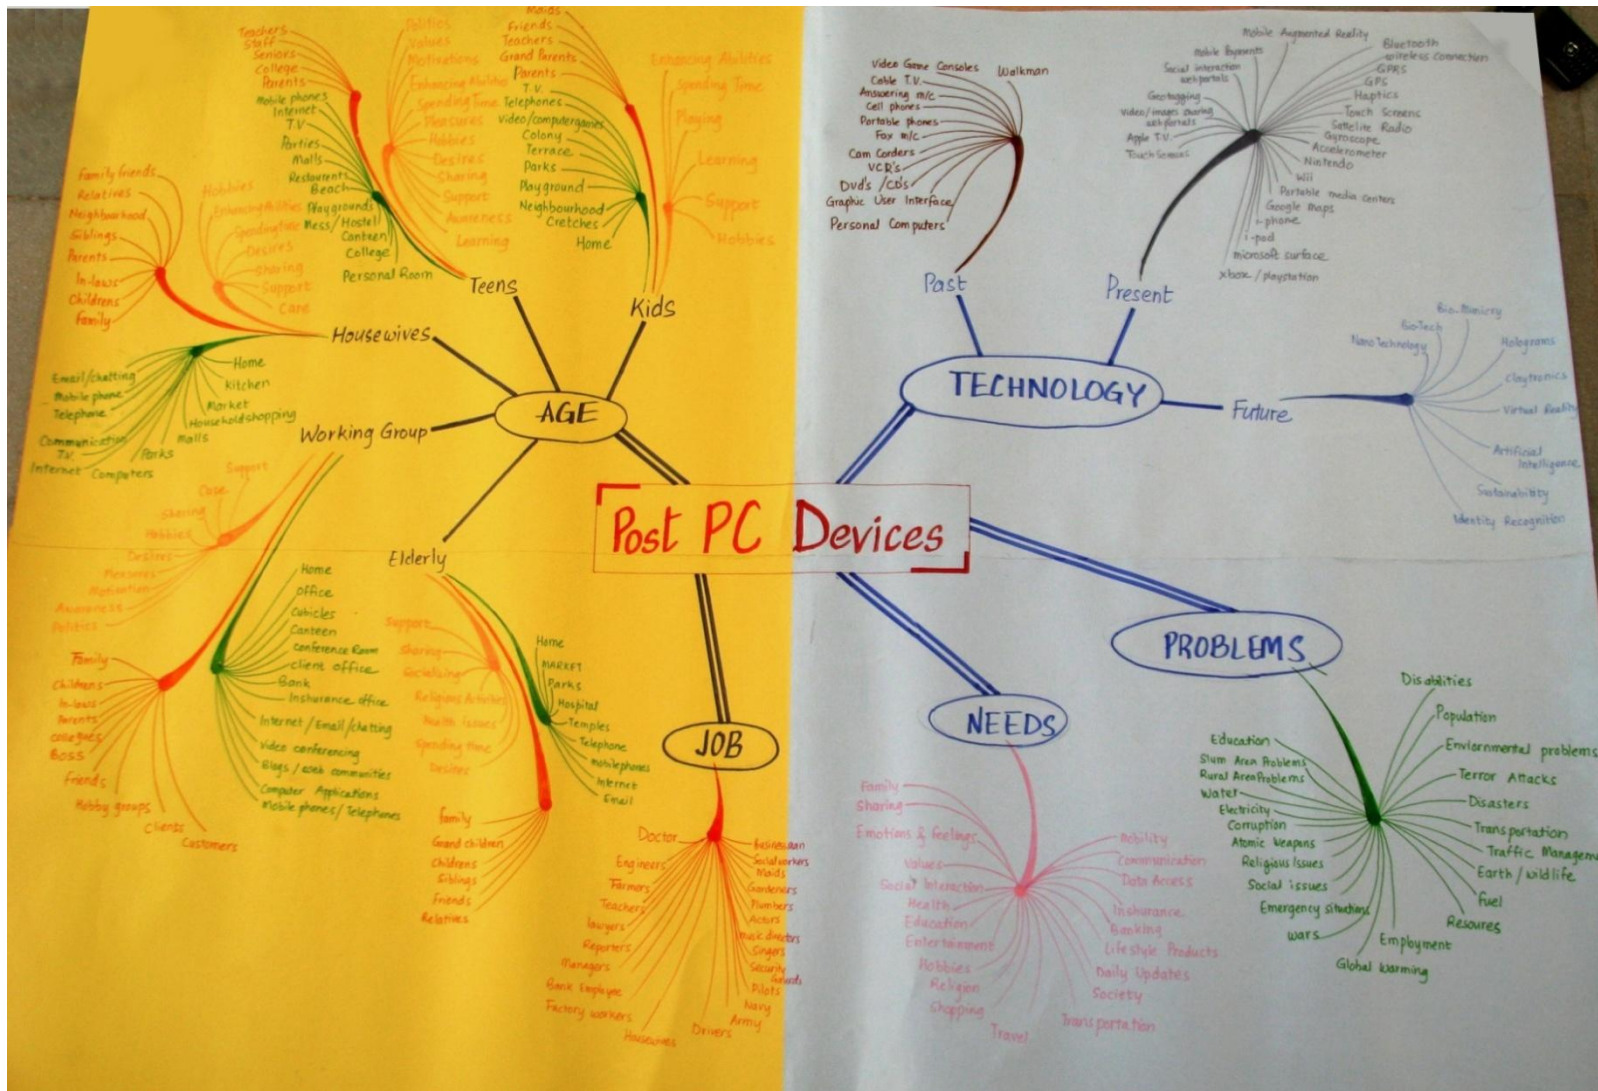 Post PC Devices
AGE
Teens
Teachers
Staff
Seniors
College
Parents
Mobile phones
Internet
T.V
Parties
Malls
Restaurents
Beach
Playgrounds
Mess/Hostell
Canteen
College
Personal Room
Politics
Values
Motivations
Enhancing Abilities
Spending Time
Pleasures
Hobbies
Desires
Sharing
Support
Awareness
Learning
Kids
Maids
Friends
Teachers
Grand Parents
Parents
T.V.
Telephones
Video/computergames
Colony
Terrace
Parks
Playground
Neighbourhood
Cretches
Home
Enhancing Abilities
Spending Time
Playing
Learning
Support
Hobbies
Housewives
Family friends
Relatives
Neighbourhood
Siblings
Parents
In-laws
Childrens
Family
Hobbies
Enhancing Abilities
Spending time
Desires
Sharing
Support
Care
Home
Kitchen
Market
Householdshopping
Malls
Parks
Email/chatting
Mobile phone
Telephone
Communication
T.V.
Internet Computers
Working Group
Support
Care
Sharing
Hobbies
Desires
Measures
Motivation
Awareness
Politics
Home
Office
Cubicles
Canteen
conference Room
client office
Bank
Inshurance office
Internet / Email /chatting
Video conferencing
Blogs / web communities
Computer Applications
Mobile phones / Telephones
Family
Childrens
In-laws
Parents
collegues
Boss
Friends
Hobby groups
Clients
Customers
Elderly
Support
Sharing
Socialising
Religious Activities
Health issues
Spending time
Desires
Home
MARKET
Parks
Hospital
Temples
Telephone
mobilephones
Internet
Email
Family
Grand children
Childrens
Siblings
Friends
Relatives
JOB
Doctor
Engineers
Farmers
Teachers
lawyers
Reporters
Managers
Bank Employee
Factory workers
Housewives
Drivers
Army
Navy
Pilots
Security
Guards
Singers
music directors
Actors
Plumbers
Gardeners
Maids
Social workers
Businessman
TECHNOLOGY
Past
Walkman
Video Game Consoles
Cable T.V.
Answering m/c
Cell phones
Portable phones
Fax m/c
Cam Corders
VCR's
Dvd's /CD's
Graphic User Interface
Personal Computers
Present
Mobile Augmented Reality
Mobile Payments
Social interaction
web portals
Geotagging
Video/images sharing
web portals
Apple T.V.
Touch Screens
Bluetooth
wireless connection
GPRS
GPS
Haptics
Touch Screens
Sattelite Radio
Gyroscope
Accelerometer
Nintendo
Wii
Portable media centers
Google maps
i-phone
i-pod
microsoft surface
xbox / playstation
Future
Bio-Mimicry
Bio-Tech
Nano Technology
Holograms
Claytronics
Virtual Reality
Artificial
Intelligence
Sustainability
Identity Recognition
PROBLEMS
Disabilities
Population
Enviornmental problems
Terror Attacks
Disasters
Transportation
Traffic Managem
Earth / wild life
Fuel
Resoures
Employment
Global Warming
Education
Slum Area Problems
Rural Area Problems
Water
Electricity
Corruption
Atomic Weapons
Religious Issues
Social issues
Emergency situations
wars
NEEDS
Family
Sharing
Emotions & feelings
Values
Social Interaction
Health
Education
Entertainment
Hobbies
Religion
Shopping
Travel
Mobility
Communication
Data Access
Inshurance
Banking
Life style Products
Daily Updates
Society
Transportation